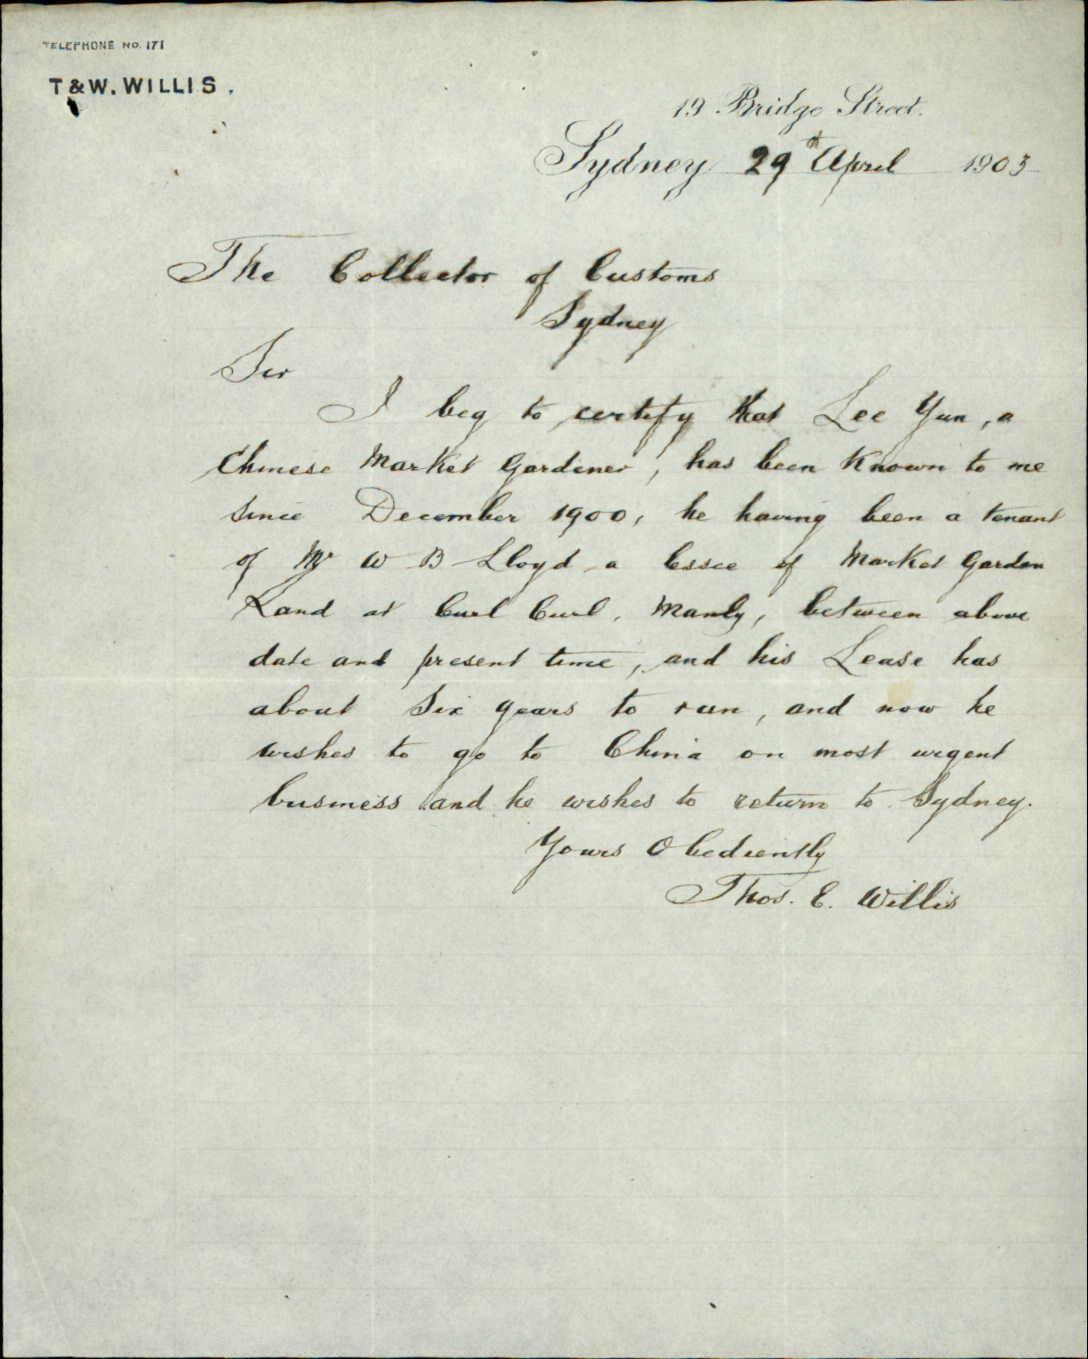 TELEPHONE NO. 171
T & W. WILLIS.
19 Bridge Street.
Sydney 29th April 1903
The Collector of Customs
Sydney
Sir
I beg to certify that Lee Yun, a
Chinese Market Gardener, has been Known to me
since December 1900, he having been a tenant
of Mr W B Lloyd a lessee of Market Garden
Land at Curl Curl, Manly, between above
date and present time, and his Lease has
about Six years to run, and now he
wishes to go to China on most urgent
business and he wishes to return to Sydney.
Yours Obediently
Thos. E. Willis